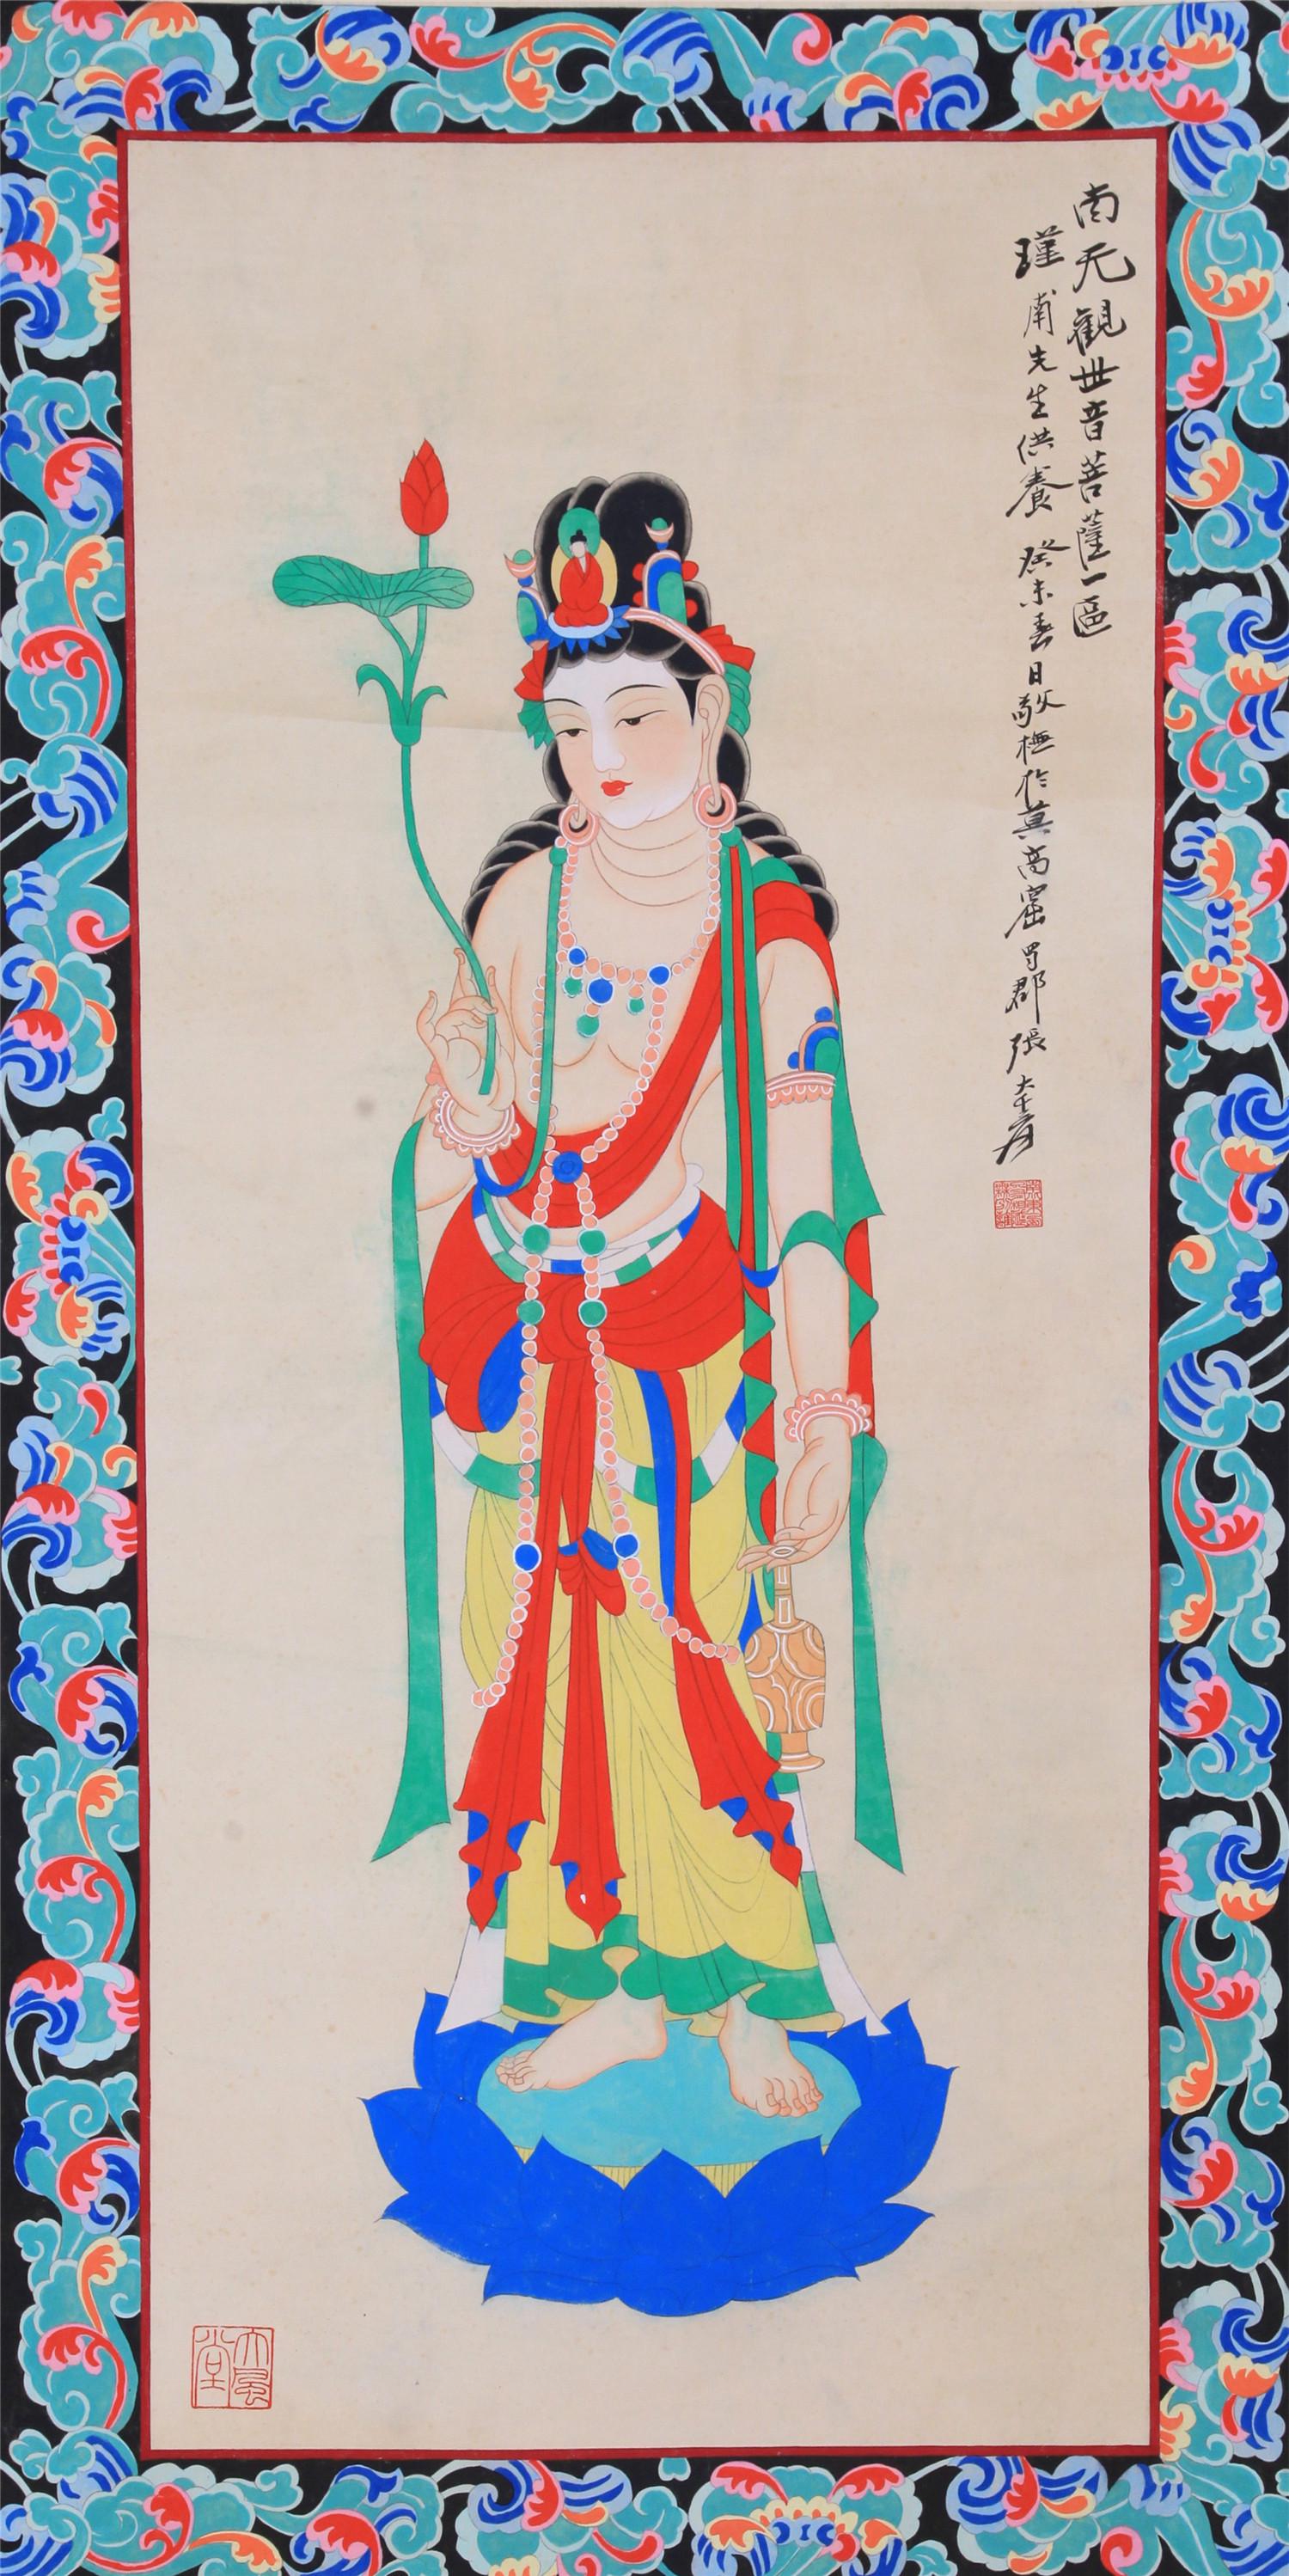 南无觀世音菩薩一區
瑾甫先生供養 癸未春日敬橅於莫高窟 蜀郡張大千爰
大風堂